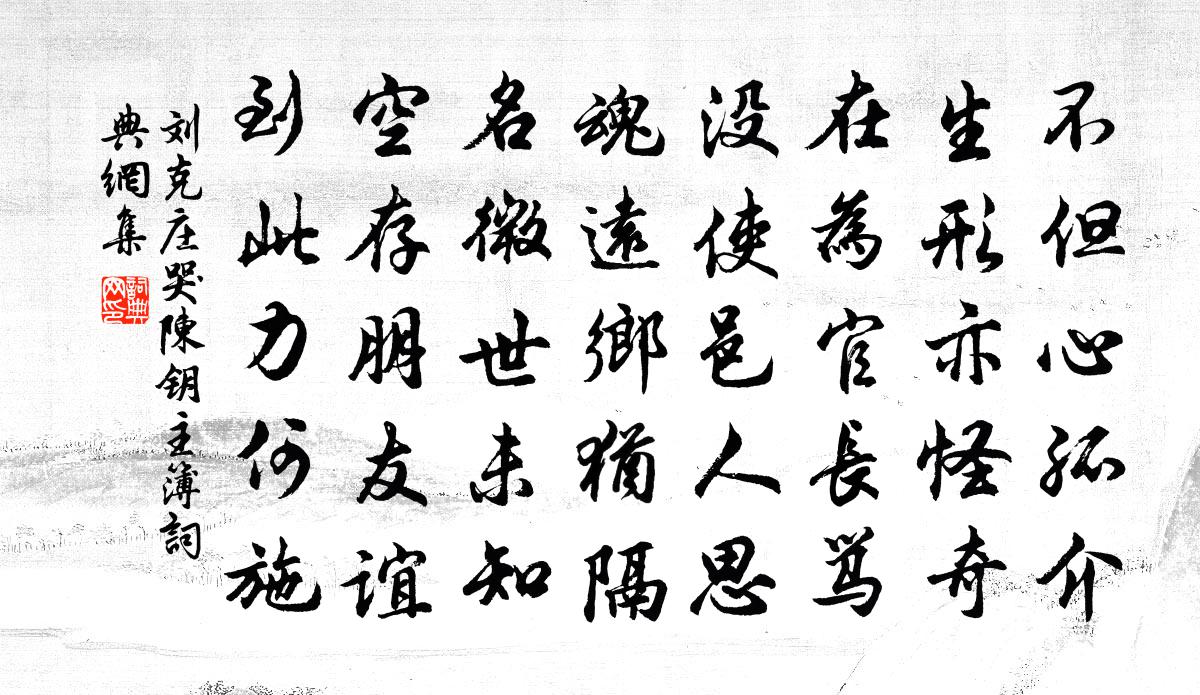 不但心孤介
生形亦怪奇
在為官長罵
没使邑人思
魂遠鄉猶隔
名微世未知
空存朋友誼
到此力何施
刘克庄哭陳钥主簿詞
典網集
詞典
网印